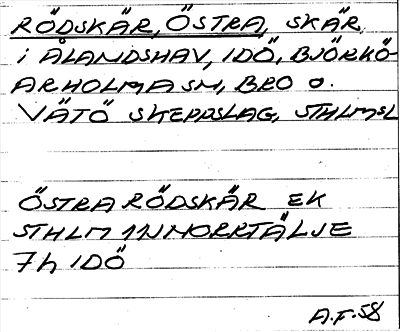 RÖDSKÄR, ÖSTRA, SKÄR
i ÅLANDSHAV, IDÖ, BJÖRKÖ-
ARHOLMA SN, BRO o.
VÄTÖ SKEPPSLAG, STHLMSL
ÖSTRA RÖDSKÄR EK
STHLM 1N NORRTÄLJE
7h IDÖ
A.F. 58